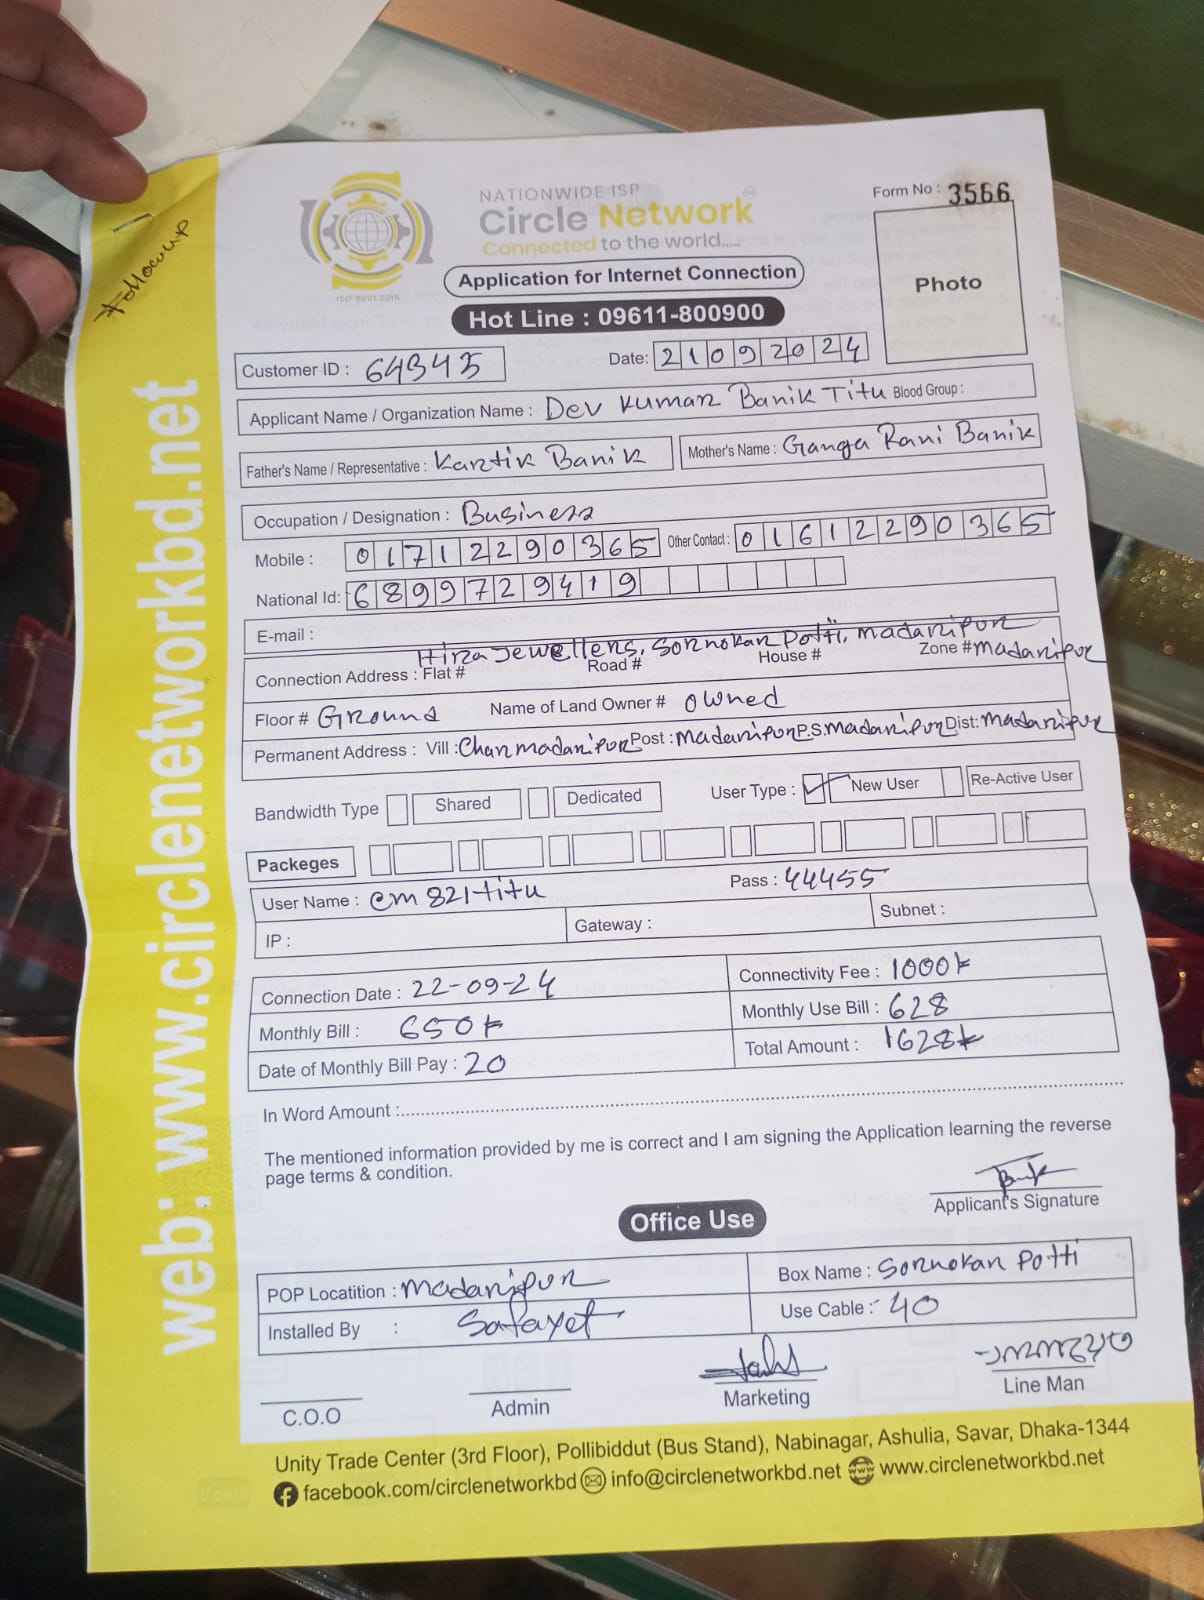 Followup
web: www.circlenetworkbd.net
NATIONWIDE ISP
Circle Network
Connected to the world.....
ISO 9001:2015
Application for Internet Connection
Hot Line : 09611-800900
Form No : 3566
Photo
Customer ID : 64345
Date: 21092024
Applicant Name / Organization Name : Dev Kumar Banik Titu Blood Group :
Father's Name / Representative : Kartik Banik Mother's Name : Ganga Rani Banik
Occupation / Designation : Business
Mobile : 01712290365 Other Contact : 01612290365
National Id: 6899729419
E-mail :
Hira Jewellers, Sornokar Potti, Madaripur
Connection Address : Flat # Road # House # Zone # Madaripur
Floor # Ground Name of Land Owner # owned
Permanent Address : Vill : Charmadaripur Post : Madaripur P.S: Madaripur Dist: Madaripur
Bandwidth Type Shared Dedicated User Type : New User Re-Active User
Packeges
User Name : cm821titu Pass : 44455
IP : Gateway : Subnet :
Connection Date : 22-09-24 Connectivity Fee : 1000৳
Monthly Bill : 650৳ Monthly Use Bill : 628
Date of Monthly Bill Pay : 20 Total Amount : 1628৳
In Word Amount :
The mentioned information provided by me is correct and I am signing the Application learning the reverse
page terms & condition.
Applicant's Signature
Office Use
POP Locatition : Madaripur Box Name : Sornokar Potti
Installed By : Safayet Use Cable : 40
C.O.O Admin Marketing Line Man
Unity Trade Center (3rd Floor), Pollibiddut (Bus Stand), Nabinagar, Ashulia, Savar, Dhaka-1344
facebook.com/circlenetworkbd info@circlenetworkbd.net www.circlenetworkbd.net